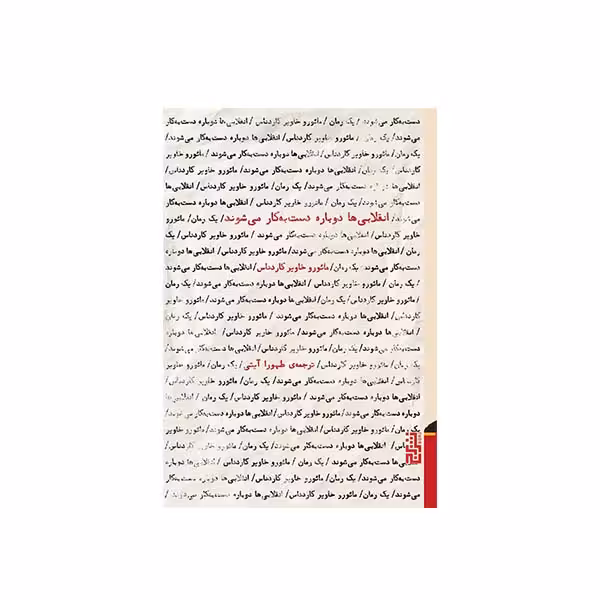 دست‌به‌کار می‌شوند/ یک رمان / مائورو خاویر کارد‌ناس / انقلابی‌ها دوباره دست‌به‌کار
می‌شوند/ یک رمان / مائورو خاویر کارد‌ناس/ انقلابی‌ها دوباره دست‌به‌کار می‌شوند/
یک رمان/ مائورو خاویر کارد‌ناس /انقلابی‌ها دوباره دست‌به‌کار می‌شوند / مائورو خاویر
کارد‌ناس/ یک رمان/ انقلابی‌ها دوباره دست‌به‌کار می‌شوند/ مائورو خاویر کارد‌ناس/
انقلابی‌ها دوباره دست‌به‌کار می‌شوند / یک رمان/ مائورو خاویر کارد‌ناس/ انقلابی‌ها
دست‌به‌کار می‌شوند/ یک رمان / مائورو خاویر کارد‌ناس / انقلابی‌ها دوباره دست‌به‌کار
می‌شوند/ انقلابی‌ها دوباره دست‌به‌کار می‌شوند/ یک رمان/ مائورو
خاویر کارد‌ناس/ انقلابی‌ها دوباره دست‌به‌کار می‌شوند / مائورو خاویر کارد‌ناس/ یک
رمان / انقلابی‌ها دوباره دست‌به‌کار می‌شوند/ مائورو خاویر کارد‌ناس/ انقلابی‌ها دوباره
دست‌به‌کار می‌شوند/ یک رمان/ مائورو خاویر کارد‌ناس/ انقلابی‌ها دست‌به‌کار می‌شوند
/ یک رمان / مائورو خاویر کارد‌ناس / انقلابی‌ها دوباره دست‌به‌کار می‌شوند/ یک رمان
/ مائورو خاویر کارد‌ناس/ یک رمان/ انقلابی‌ها دوباره دست‌به‌کار می‌شوند/ مائورو خاویر
کارد‌ناس/ انقلابی‌ها دوباره دست‌به‌کار می‌شوند / مائورو خاویر کارد‌ناس/ یک رمان
/ انقلابی‌ها دوباره دست‌به‌کار می‌شوند/ مائورو خاویر کارد‌ناس/ انقلابی‌ها دوباره
دست‌به‌کار می‌شوند/ یک رمان/ مائورو خاویر کارد‌ناس/ انقلابی‌ها دست‌به‌کار می‌شوند/
یک رمان/ مائورو خاویر کارد‌ناس/ ترجمه‌ی طهورا آیتی/ یک رمان/ مائورو خاویر
کارد‌ناس / انقلابی‌ها دوباره دست‌به‌کار می‌شوند/ یک رمان/ مائورو خاویر کارد‌ناس/
انقلابی‌ها دوباره دست‌به‌کار می‌شوند / مائورو خاویر کارد‌ناس/ یک رمان / انقلابی‌ها
دوباره دست‌به‌کار می‌شوند/ مائورو خاویر کارد‌ناس/ انقلابی‌ها دوباره دست‌به‌کار می‌شوند/
یک رمان/ مائورو خاویر کارد‌ناس/ انقلابی‌ها دست‌به‌کار می‌شوند/ یک رمان / مائورو
کارد‌ناس/ انقلابی‌ها دوباره دست‌به‌کار می‌شوند/ یک رمان/ مائورو خاویر کارد‌ناس/
دست‌به‌کار می‌شوند / یک رمان / مائورو خاویر کارد‌ناس / انقلابی‌ها دوباره
دست‌به‌کار می‌شوند/ یک رمان/ مائورو خاویر کارد‌ناس/ انقلابی‌ها دوباره دست‌به‌کار
می‌شوند/ یک رمان/ مائورو خاویر کارد‌ناس/ انقلابی‌ها دوباره دست‌به‌کار می‌شوند /